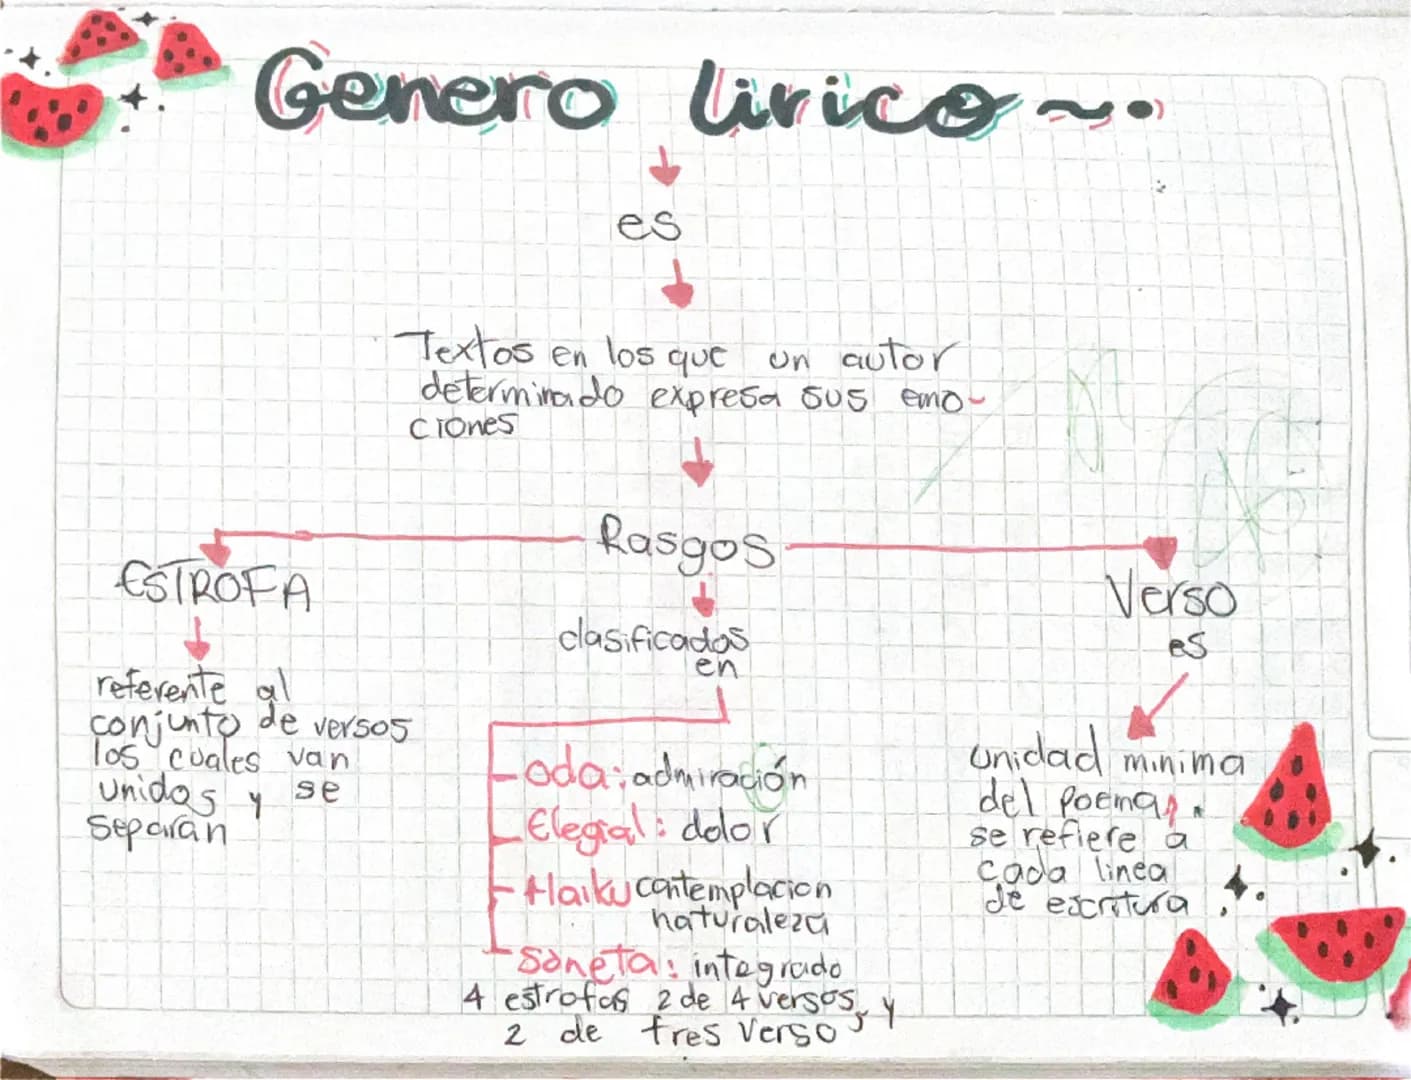 Genero lirico ~.
es
Textos en los que un autor
determinado expresa sus emo-
ciones
Rasgos
ESTROFA
referente al
conjunto de versos
los cuales van
unidos y se
separan
clasificados
en
oda: admiración
Elegial: dolor
Haiku contemplacion
naturaleza
soneta: integrado
4 estrofas 2 de 4 versos, y
2 de tres versos
Verso
es
unidad minima
del poema,
se refiere a
cada linea
de escritura